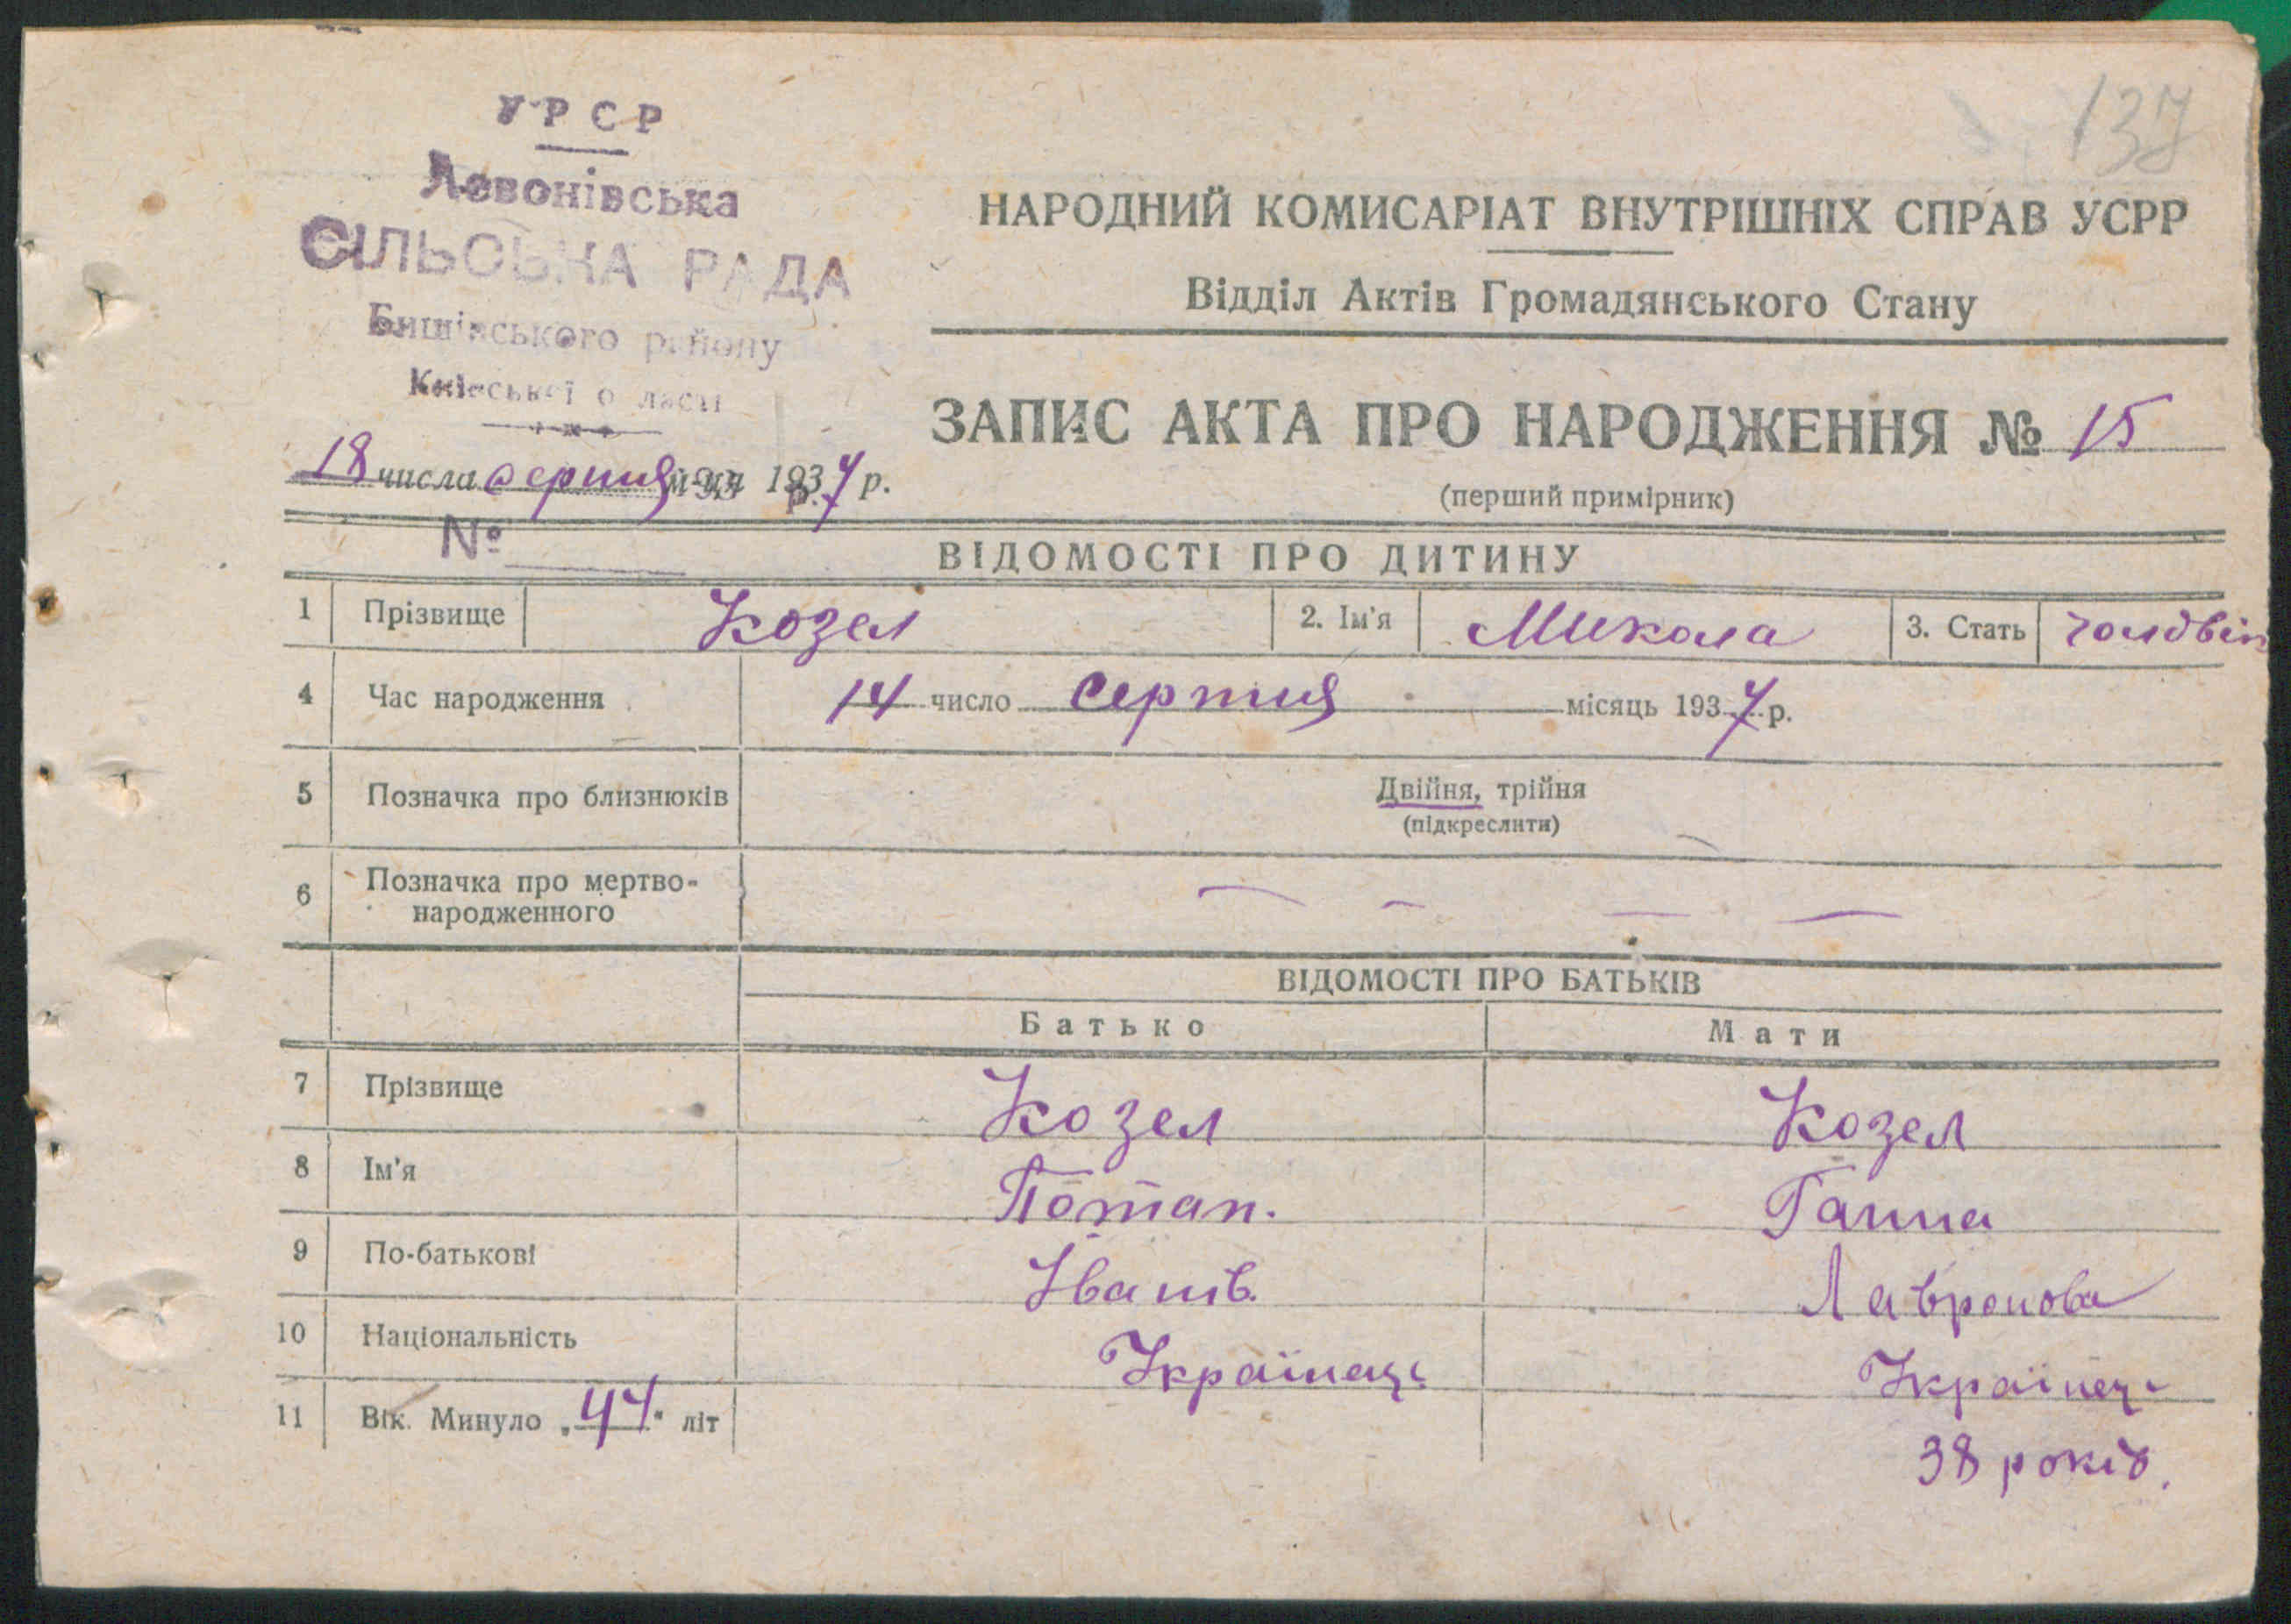 137
УРСР
Левонівська
СІЛЬСЬКА РАДА
Бишівського району
Київської о ласти
НАРОДНИЙ КОМИСАРІАТ ВНУТРІШНІХ СПРАВ УСРР
Відділ Актів Громадянського Стану
ЗАПИС АКТА ПРО НАРОДЖЕННЯ № 15
(перший примірник)
18 числа серпня м-ця 1937 р.
№
ВІДОМОСТІ ПРО ДИТИНУ
1 Прізвище Козел 2. Ім'я Микола 3. Стать
4 Час народження 14 число серпня місяць 1937 р.
5 Позначка про близнюків Двійня, трійня
(підкреслити)
6 Позначка про мертво-
народженного — — — —
ВІДОМОСТІ ПРО БАТЬКІВ
Батько Мати
7 Прізвище Козел Козел
8 Ім'я Потап. Ганна
9 По-батькові Іванів.
10 Національність Українець Українець
11 Вік. Минуло „44" літ
38 років.